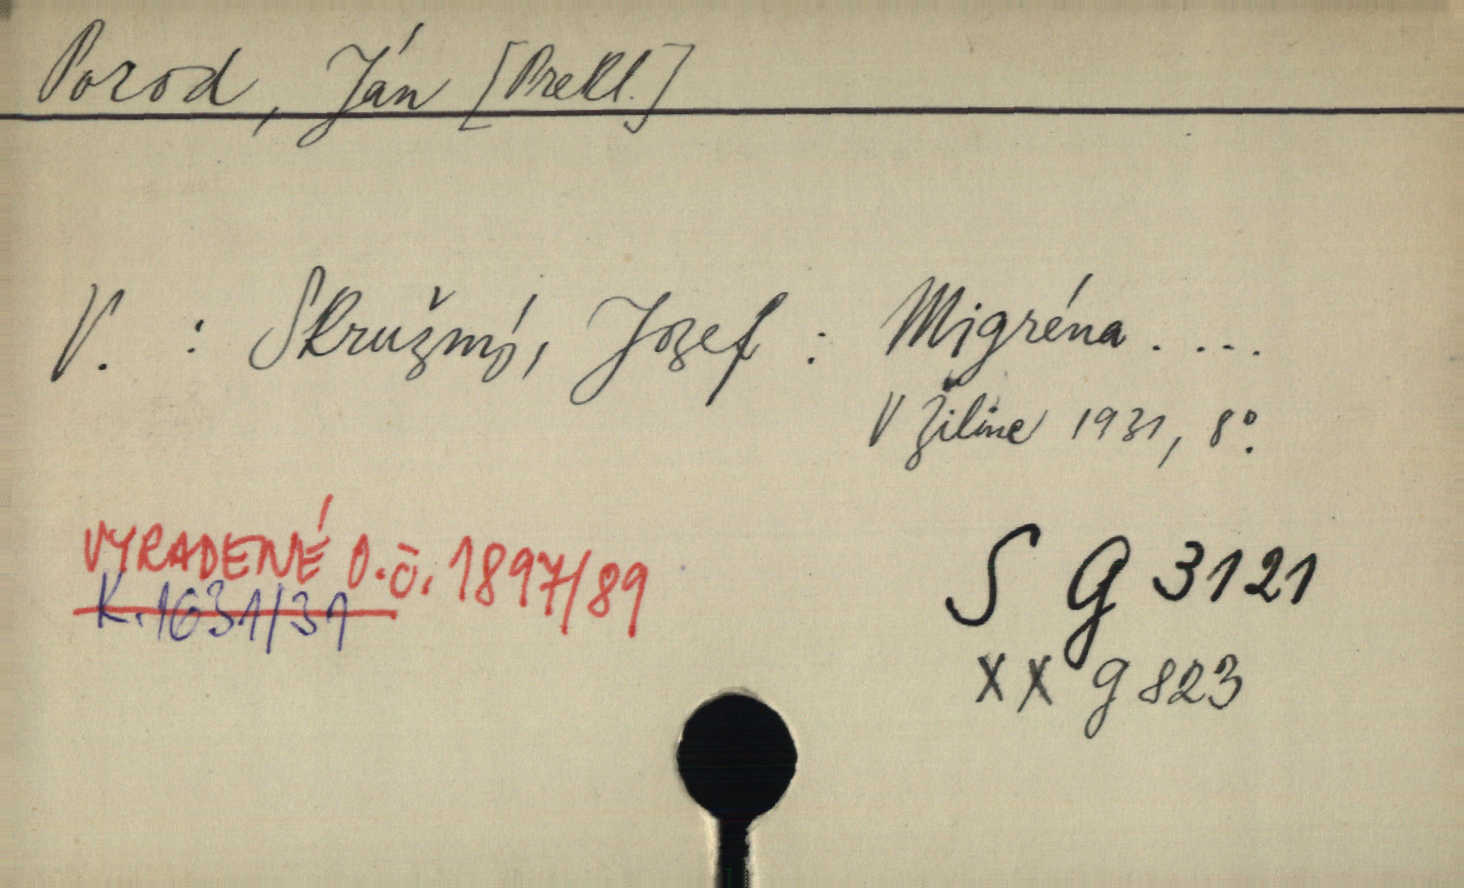 Porod, Ján [Prekl.]
V. : Skružný, Jozef : Migréna . ...
V Žiline 1931, 8°.
VYRADENÉ O.č. 1897/89
K. 1631/31
S G 3121
XX g 823